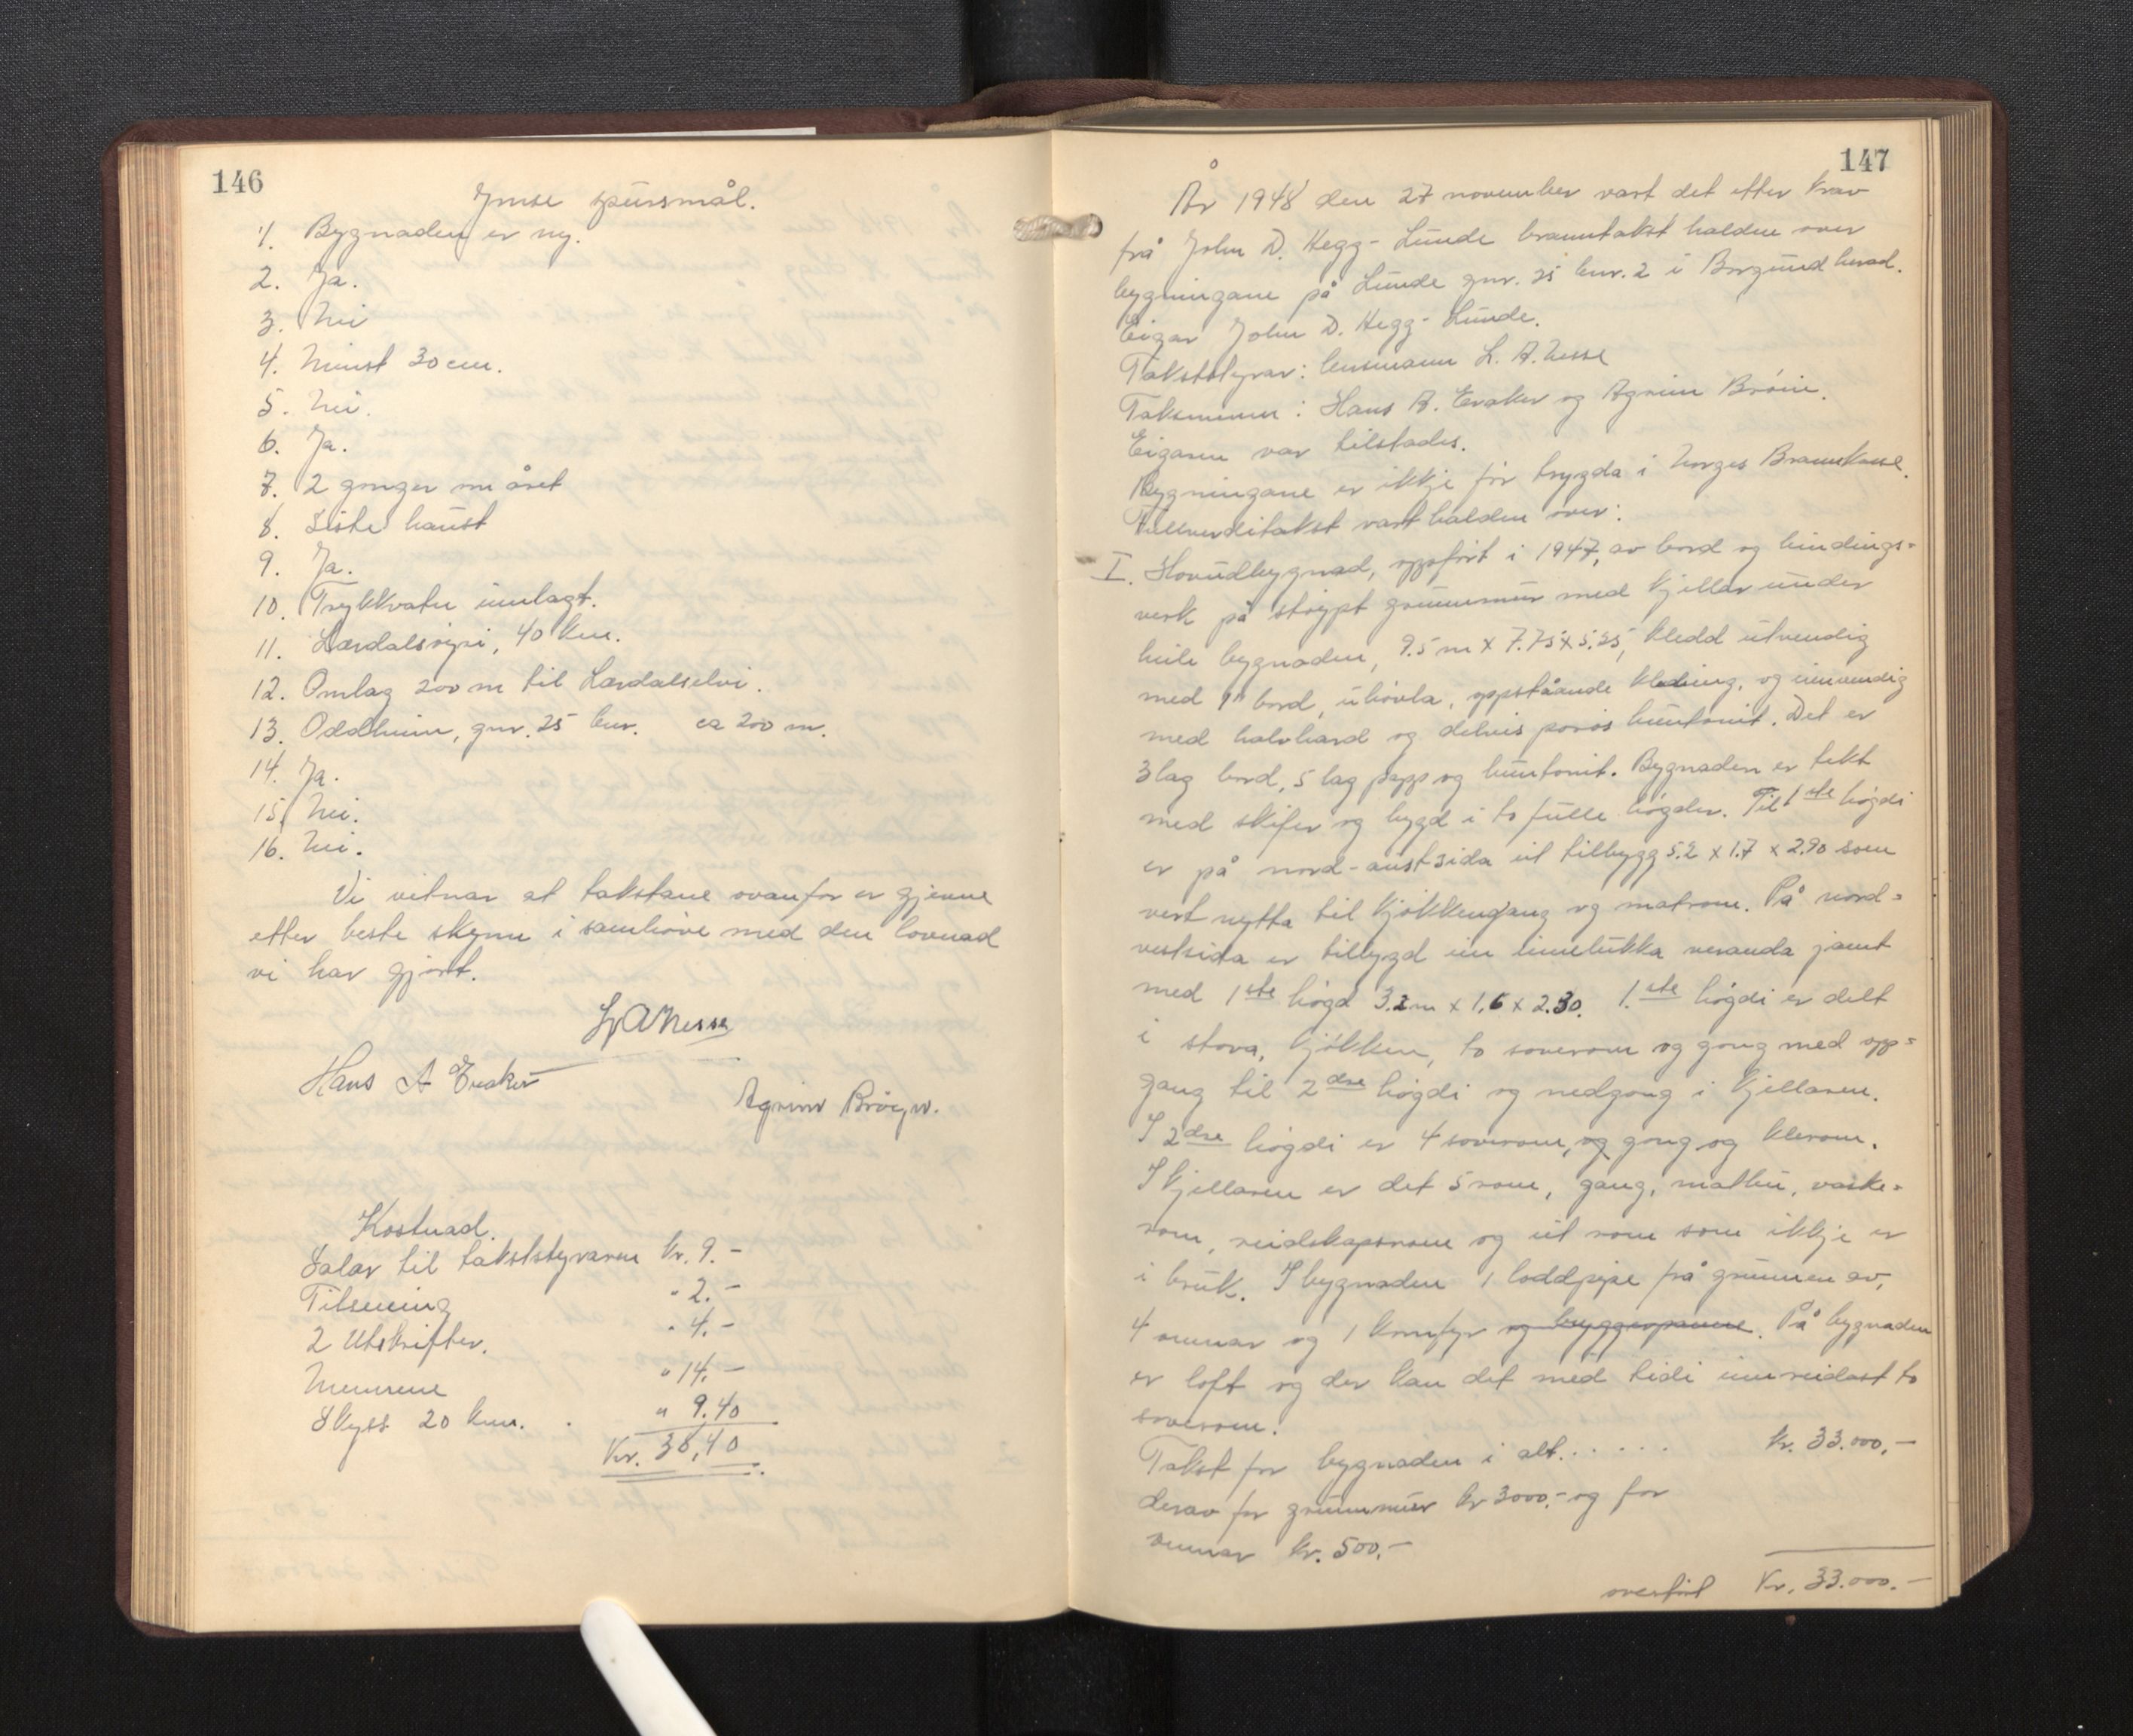 146
Ymse spursmål.
1. Bygnaden er ny.
2. Ja.
3. Nei
4. Minst 30 cm.
5. Nei.
6. Ja.
7. 2 gonger um året
8. Siste haust
9. Ja.
10. Trykkvatn innlagt.
11. Lærdalsøyri, 40 km.
12. Omlag 200 m til Lærdalselvi.
13. Oddheim, gnr. 25 bnr. ca 200 m.
14. Ja.
15. Nei.
16. Nei.
Vi vitnar at takstane ovanfor er gjevne
etter beste skynn i samhøve med den lovnad
vi har gjort.
L. A. Nesse
Hans A Eraker
Agrim Brøyn.
Kostnad.
Salær til takststyraren kr. 9.-
Tilsening " 2.-
2 Utskrifter. " 4.-
Mennene " 14.-
Skyss 20 km. " 9.40
Kr. 38,40
147
År 1948 den 27 november vart det etter krav
frå John D. Hegg-Lunde branntakst halden over
bygningane på Lunde gnr. 25 bnr. 2 i Borgund herad.
Eigar John D. Hegg-Lunde.
Takststyrar: lensmann L. A. Nesse
Taksmenn: Hans A. Eraker og Agrim Brøin.
Eigaren var tilstades.
Bygningane er ikkje før trygda i Norges Brannkasse.
Fullverditakst vart halden over:
I. Hovudbygnad, oppført i 1947, av bord og bindings=
verk på støypt grunnmur med kjellar under
heile bygnaden, 9.5 m x 7.75 x 5.25, kledd utvendig
med 1" bord, uhøvla, oppståande kledning, og innvendig
med halvhard og delvis porøs huntonit. Det er
3 lag bord, 5 lag papp og huntonit. Bygnaden er tekt
med skifer og bygd i to fulle høgder. Til 1ste høgdi
er på nord-austsida eit tilbygg 5.2 x 1.7 x 2.90 som
vert nytta til kjøkkengang og matrom. På nord=
vestsida er tilbygd ein innelukka veranda jamt
med 1ste høgd 3.2 m x 1.6 x 2.30. 1.ste høgdi er delt
i stova, kjøkken, to soverom og gong med opp=
gang til 2dre høgdi og nedgong i kjellaren.
I 2dre høgdi er 4 soverom, og gong og klerom.
I kjellaren er det 5 rom, gang, matbu, vaske=
rom, reidskapsrom og eit rom som ikkje er
i bruk. I bygnaden 1 loddpipe frå grunnen av,
4 omnar og 1 komfyr og bryggepanne. På bygnaden
er loft og der kan det med tidi innreidast to
soverom.
Takst for bygnaden i alt. . . . . . kr. 33.000,-
derav for grunnmur kr 3000.- og for
omnar kr. 500.-
overført Kr. 33.000.-